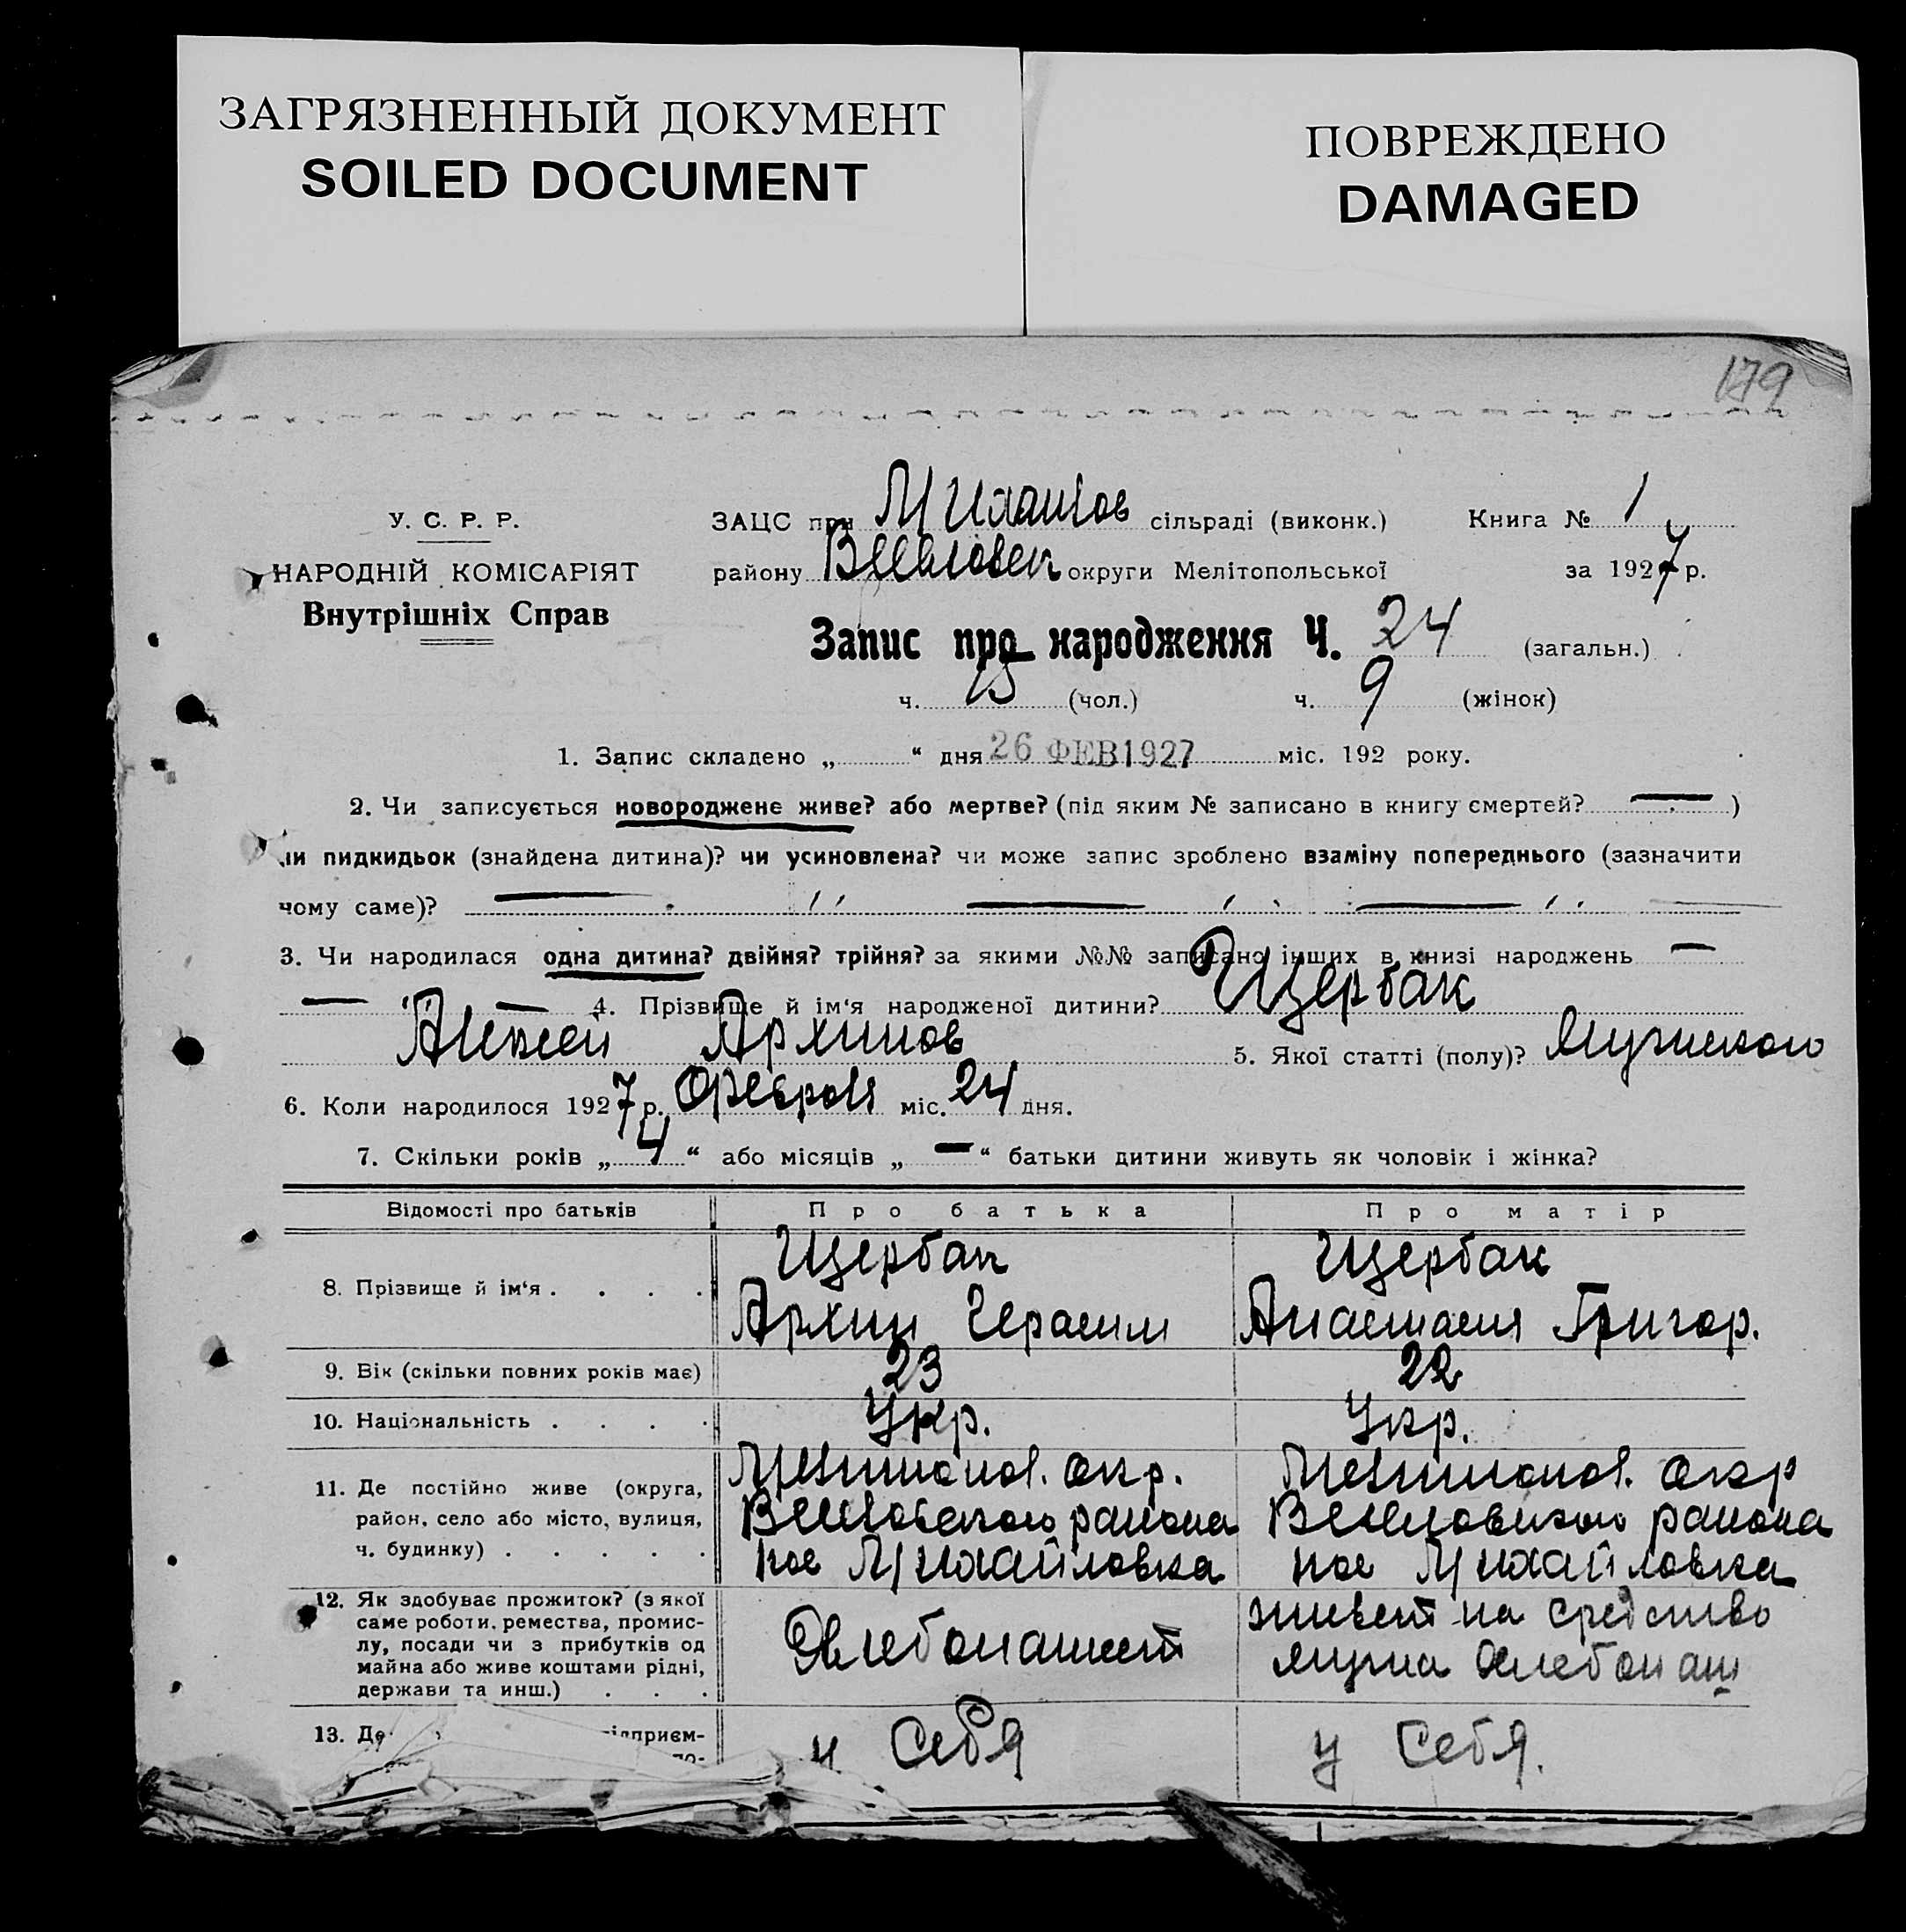 ЗАГРЯЗНЕННЫЙ ДОКУМЕНТ
SOILED DOCUMENT
ПОВРЕЖДЕНО
DAMAGED
179
У. С. Р. Р.
НАРОДНІЙ КОМІСАРІЯТ
Внутрішніх Справ
ЗАЦС при Михайлов сільраді (виконк.) Книга № 1
району Веселовск округи Мелітопольської за 1927 р.
Запис про народження Ч. 24 (загальн.)
ч. 15 (чол.) ч. 9 (жінок)
1. Запис складено „ “ дня 26 ФЕВ 1927 міс. 192 року.
2. Чи записується новороджене живе? або мертве? (під яким № записано в книгу смертей? — )
чи пидкидьок (знайдена дитина)? чи усиновлена? чи може запис зроблено взаміну попереднього (зазначити
чому саме)? — ,, — ,, — ,,
3. Чи народилася одна дитина? двійня? трійня? за якими №№ записано інших в книзі народжень —
— „ — 4. Прізвище й ім‘я народженої дитини? Щербак
Алексей Архипов 5. Якої статті (полу)? Мужского
6. Коли народилося 1927 р. Февраля міс. 24 дня.
7. Скільки років „ 4 “ або місяців „ — “ батьки дитини живуть як чоловік і жінка?
Відомості про батьків Про батька Про матір
8. Прізвище й ім‘я . . . . Щербак Щербак
Архип Герасим Анастасия Григор.
9. Вік (скільки повних років має) 23 22
10. Національність . . . . Укр. Укр.
11. Де постійно живе (округа, Мелитопол. окр. Мелитопол. окр
район, село або місто, вулиця, Веселовского района Веселовского района
ч. будинку) . . . . . пос Михайловка пос Михайловка
12. Як здобуває прожиток? (з якої
саме роботи, ремества, промис-
лу, посади чи з прибутків од
майна або живе коштами рідні,
держави та инш.) . . .
Хлебопашест
живет на средство
мужа Хлебопаш
13. Де підприєм-
у себя у себя.